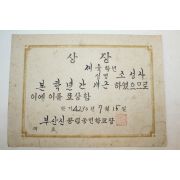 상장
제육학년
성명 조성자
본 학년간 개근 하였으므로
이에 이를 표상함
단기 42 년 7월 15일
부산진공립국민학교장